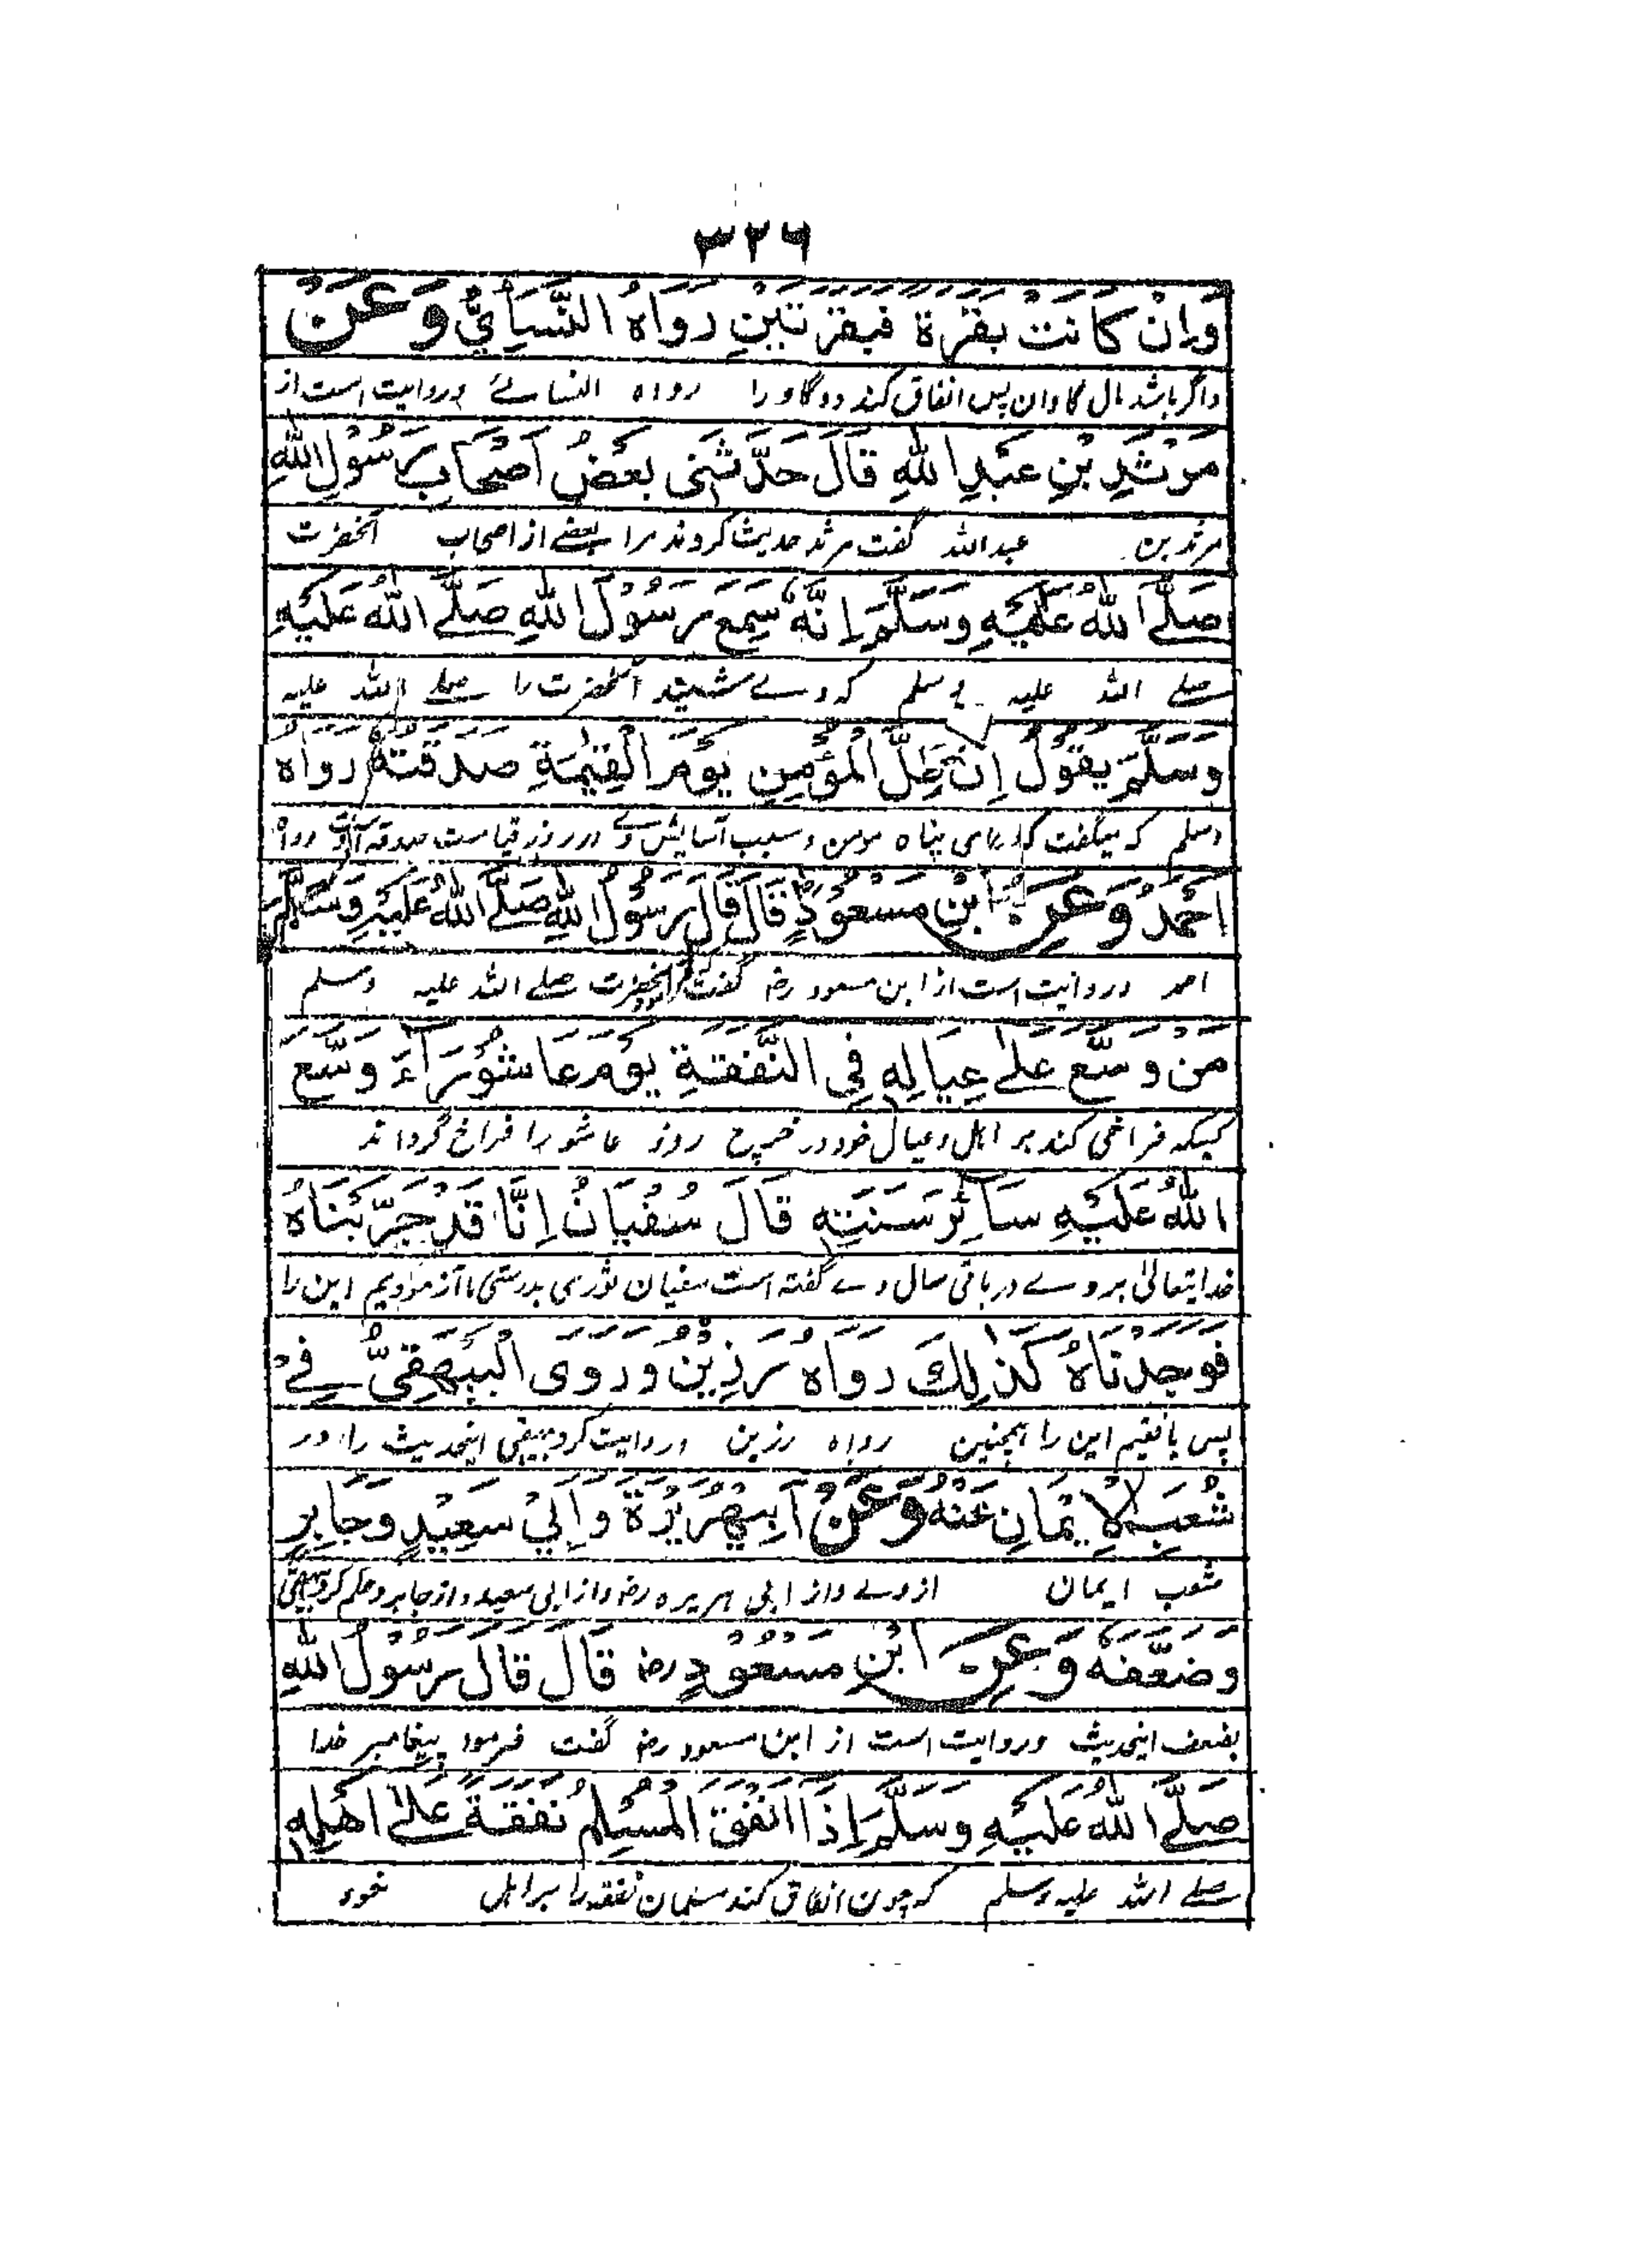 ٣٢٦
وَإِنْ كَانَتْ بَقَرَةً فَبَقَرَتَيْنِ رَوَاهُ النَّسَائِيُّ وَعَنْ
واگر باشد مال گاوان پس انفاق کند دو گاو را رواه النسائے وروایت است از
مَرْثَدِ بْنِ عَبْدِ اللهِ قَالَ حَدَّثَنِي بَعْضُ أَصْحَابِ رَسُوْلِ اللهِ
مرثد بن عبد الله گفت مرثد حدیث کردند مرا بعضے از اصحاب آنحضرت
صَلَّے اللهُ عَلَيْهِ وَسَلَّمَ إِنَّهُ سَمِعَ رَسُوْلَ اللهِ صَلَّے اللهُ عَلَيْهِ
صلے الله علیه وسلم که وے شنید آنحضرت را صلے الله علیه
وَسَلَّمَ يَقُوْلُ إِنَّ ظِلَّ الْمُؤْمِنِ يَوْمَ الْقِيٰمَةِ صَدَقَتُهُ رَوَاهُ
وسلم که میگفت که جامی پناه مومن وسبب آسایش وے در روز قیامت صدقه رواه
اَحْمَدُ وَعَنِ ابْنِ مَسْعُوْدٍ رض قَالَ قَالَ رَسُوْلُ اللهِ صَلَّے اللهُ عَلَيْهِ وَسَلَّمَ
احمد وروایت است از ابن مسعود رض گفت آنحضرت صلے الله علیه وسلم
مَنْ وَسَّعَ عَلٰے عِيَالِهِ فِي النَّفَقَةِ يَوْمَ عَاشُوْرَآءَ وَسَّعَ
کسیکه فراخی کند بر اهل وعیال خود در خرچ روز عاشورا فراخ گرداند
اللهُ عَلَيْهِ سَآئِرَ سَنَتِهِ قَالَ سُفْيَانُ اِنَّا قَدْ جَرَّبْنَاهُ
خدایتعالیٰ بروے در باقی سال وے گفته است سفیان ثوری بدرستی ما آزمودیم این را
فَوَجَدْنَاهُ كَذٰلِكَ رَوَاهُ رَزِيْن وَرَوَى الْبَيْهَقِيُّ فِے
پس یافتیم این را همچنین رواه رزین وروایت کرد بیهقی اینحدیث را در
شُعَبِ الْاِيْمَانِ عَنْهُ وَعَنْ اَبِيْ هُرَيْرَةَ وَاَبِيْ سَعِيْدٍ وَجَابِرٍ
شعب ایمان از وے واز ابی هریره رض واز ابی سعید واز جابر وحکم کرد بیهقی
وَضَعَّفَهُ وَعَنِ ابْنِ مَسْعُوْدٍ رض قَالَ قَالَ رَسُوْلُ اللهِ
بضعف اینحدیث وروایت است از ابن مسعود رض گفت فرمود پیغامبر خدا
صَلَّے اللهُ عَلَيْهِ وَسَلَّمَ اِذَا اَنْفَقَ الْمُسْلِمُ نَفَقَةً عَلٰے اَهْلِهِ
صلے الله علیه وسلم که چون انفاق کند مسلمان نفقه را بر اهل خود